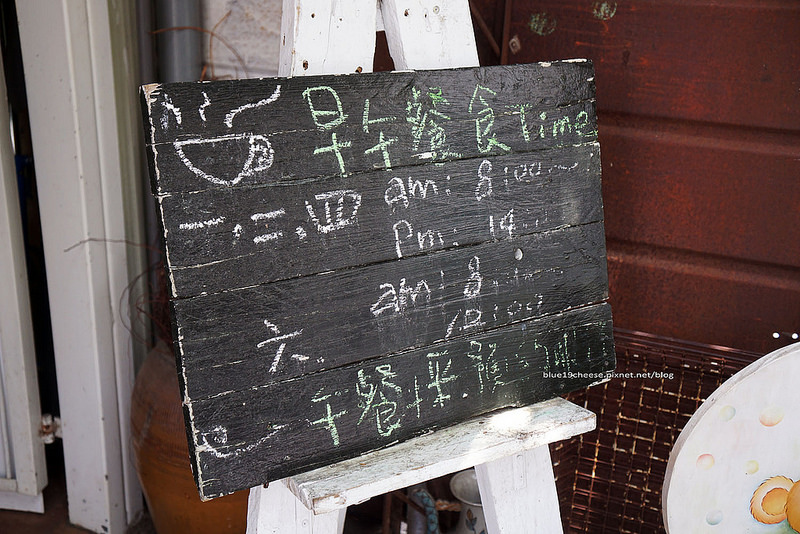 早午餐食Time
一,二,四 am: 8:00~
Pm: 14:
am: 8
六. 12:00
午餐採預約
blue19cheese.pixnet.net/blog